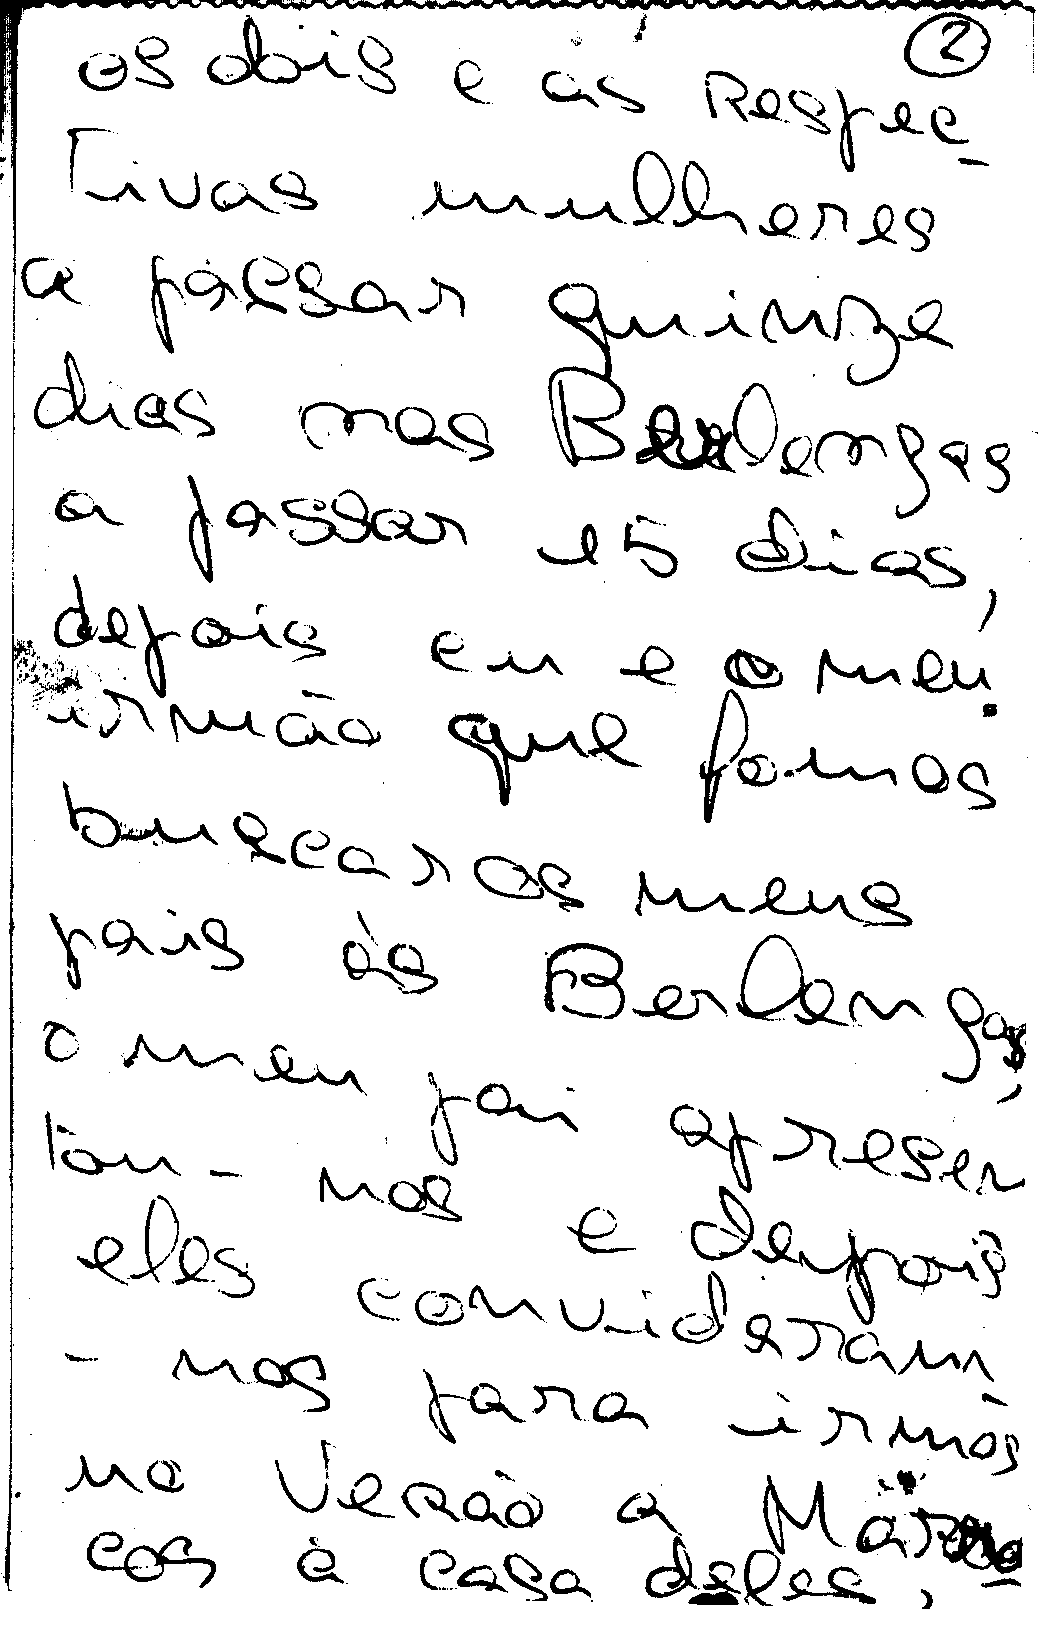 2
os dois e as Respec-
tivas mulheres
a passar quinze
dias nas Berlengas
a passar 15 dias,
depois eu e o meu
irmão que fomos
buscar os meus
pais às Berlengas,
o meu pai apresen
tou-nos e depois
eles convideram
-nos para irmos
no Verão a Marro-
cos à casa deles,